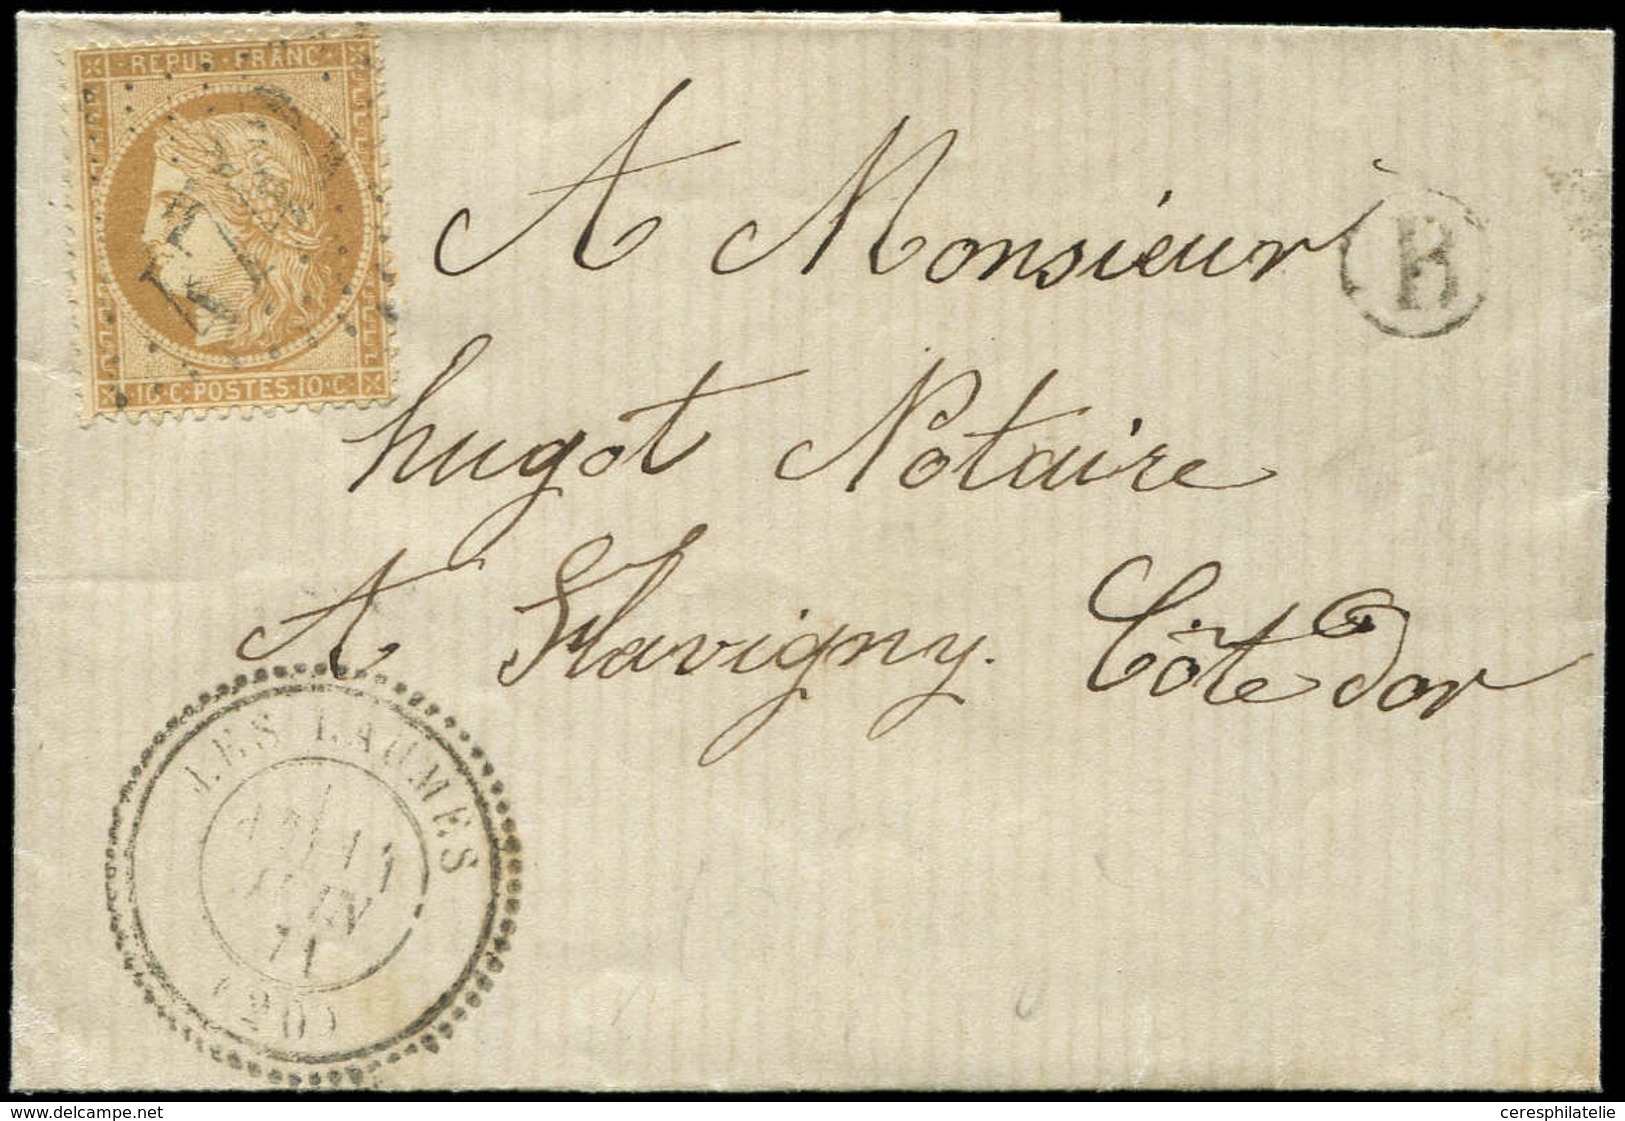 REPUB·FRANC·
10·C·POSTES·10·C
A Monsieur
B
hugot Notaire
A Flavigny. Côte d'or
LES LAUMES
JUIN
71
(20)
www.delcampe.net
ceresphilatelie